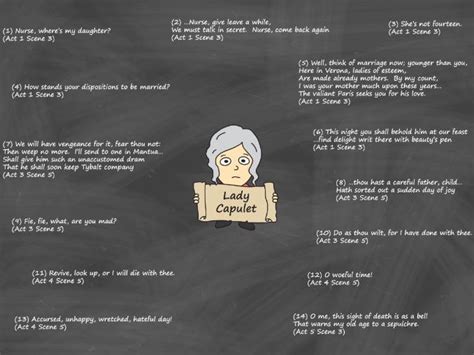 (1) Nurse, where's my daughter?
(Act 1 Scene 3)
(2) ...Nurse, give leave a while,
We must talk in secret. Nurse, come back again
(Act 1 Scene 3)
(3) She's not fourteen.
(Act 1 Scene 3)
(4) How stands your dispositions to be married?
(Act 1 Scene 3)
(5) Well, think of marriage now; younger than you,
Here in Verona, ladies of esteem,
Are made already mothers. By my count,
I was your mother much upon these years...
The valiant Paris seeks you for his love.
(Act 1 Scene 3)
(6) This night you shall behold him at our feast
...find delight writ there with beauty's pen
(Act 1 Scene 3)
(7) We will have vengeance for it, fear thou not:
Then weep no more. I'll send to one in Mantua...
Shall give him such an unaccustomed dram
That he shall soon keep Tybalt company
(Act 3 Scene 5)
(8) ...thou hast a careful father, child...
Hath sorted out a sudden day of joy
(Act 3 Scene 5)
Lady
Capulet
(9) Fie, fie, what, are you mad?
(Act 3 Scene 5)
(10) Do as thou wilt, for I have done with thee.
(Act 3 Scene 5)
(11) Revive, look up, or I will die with thee.
(Act 4 Scene 5)
(12) O woeful time!
(Act 4 Scene 5)
(13) Accursed, unhappy, wretched, hateful day!
(Act 4 Scene 5)
(14) O me, this sight of death is as a bell
That warns my old age to a sepulchre.
(Act 5 Scene 3)